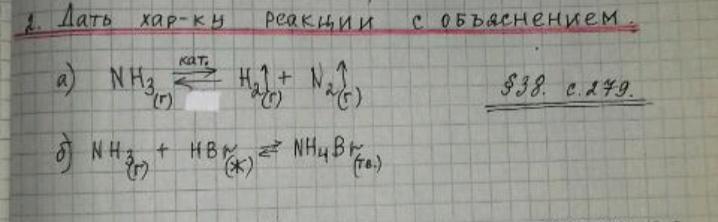 2. Дать хар-ку реакции с объяснением.
а) NH₃(г) ⇄ кат. H₂↑(г) + N₂↑(г)
§38. с.279.
б) NH₃(г) + HBr(ж) ⇄ NH₄Br(тв.)